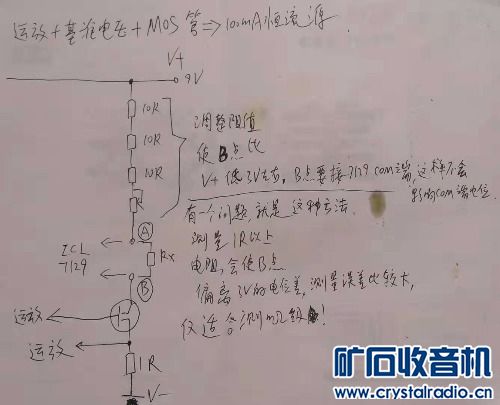 运放+基准电压+MOS管⇒100mA恒流源
V+
9V
10R
10R
10R
R
调整阻值
使B点比
V+低3V左右,B点要接7129com端,这样不会
影响com端电位.
有一个问题,就是这种方法.
测量1R以上
电阻,会使B点
偏离3V的电位差,测量误差比较大,
仅适合测mΩ级!
A
ICL
7129
Rx
B
运放
运放
1R
V-
矿石收音机
www.crystalradio.cn